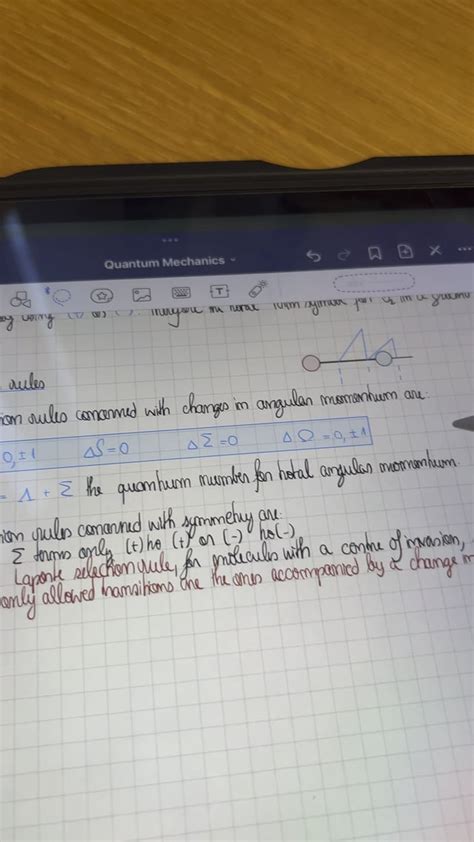 Quantum Mechanics
T
by using
rules
ion rules concerned with changes in angular momentum are:
0, ±1 ΔS = 0 ΔΣ = 0 ΔΩ = 0, ±1
= Λ + Σ the quantum number for total angular momentum
ion rules concerned with symmetry are:
Σ terms only (+) to (+) or (-) to (-)
Laporte selection rule, for molecules with a centre of inversion,
only allowed transitions are the ones accompanied by a change in